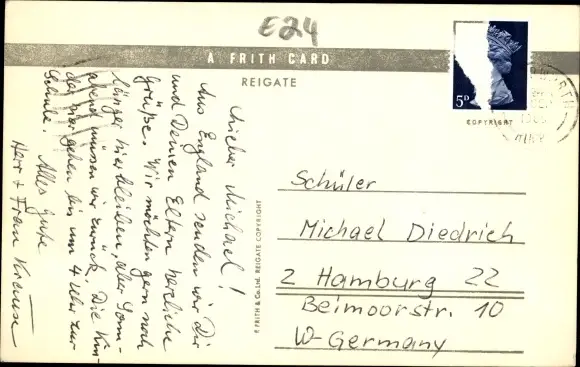 E24
A FRITH CARD
REIGATE
5P
COPYRIGHT
Lieber Michael!
Aus England senden wir Dir
und Deinen Eltern herzliche
Grüße. Wir möchten gern noch
länger hierbleiben, aber Sonn-
abend müssen wir zurück. Die Kin-
der hier gehen bis um 4 Uhr zur
Schule. Alles Gute
Herr + Frau Krause
F. FRITH & Co. Ltd. REIGATE COPYRIGHT
Schüler
Michael Diedrich
2 Hamburg 22
Beimoorstr. 10
W-Germany